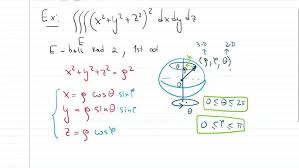 Ex: ∭(x²+y²+z²)² dxdydz
E
E - ball rad 2, 1st oct
x²+y²+z² = ρ²
x = ρ cosθ sinφ
y = ρ sinθ sinφ
z = ρ cosφ
3-D 2-D
(ρ, φ, θ)
θ
0 ≤ θ ≤ 2π
0 ≤ φ ≤ π